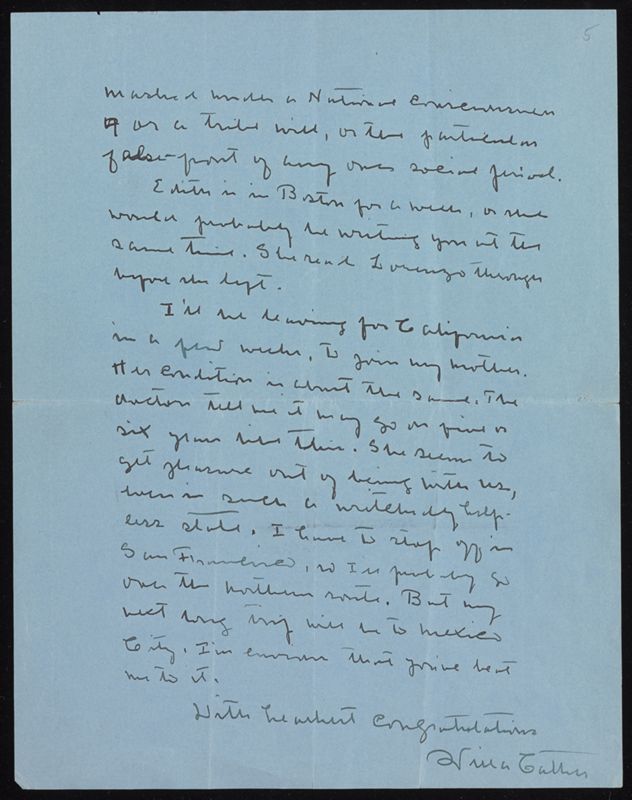 5
masked under a National Consciousness
or a tribal will, or the particular
false-front of any ones social period.
Edith is in Boston for a week, or she
would probably be writing you at the
same time. She read Lorenzo through
before she left.
I'll be leaving for California
in a few weeks, to join my mother.
Her condition is about the same. The
doctors tell me it may go on five or
six years like this. She seems to
get pleasure out of being with us,
even in such a wretchedly help-
less state. I have to stop off in
San Francisco, so I'll probably go
over the northern route. But my
next long trip will be to Mexico
City. I'm envious that you've beat
me to it.
With heartiest Congratulations
Willa Cather